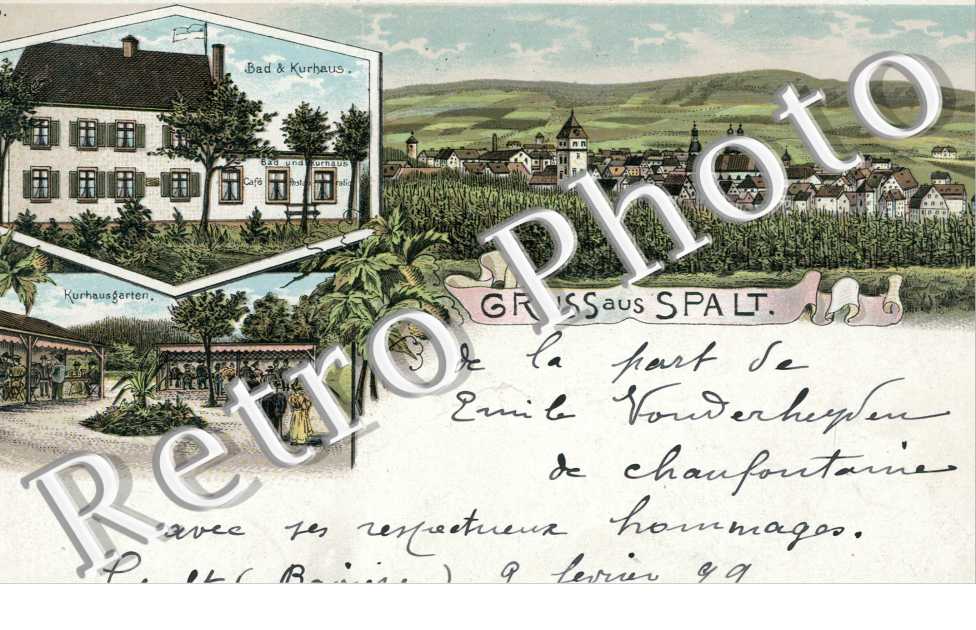 Bad & Kurhaus.
Bad und Kurhaus
Café
Kurhausgarten.
GRUSS aus SPALT.
de la part de
Emile Vonderheyden
de chaufontaine
avec ses respectueux hommages.
Spalt (Bavière) 9 fevrier 99
Retro Photo